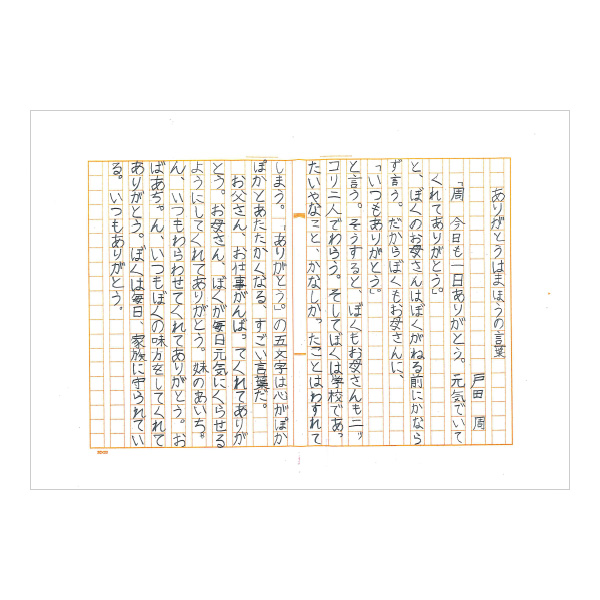 ありがとうはまほうの言葉
戸田 周
「周 今日も一日ありがとう。元気でいて
くれてありがとう。」
と、ぼくのお母さんは、ぼくがねる前にかなら
ず言う。だからぼくもお母さんに、
「いつもありがとう」
と言う。そうすると、ぼくもお母さんもニッ
コリ二人でわらう。そしてぼくは学校であっ
たいやなこと、かなしかったことはわすれて
しまう。「ありがとう」の五文字は心がぽか
ぽかとあたたかくなる。すごい言葉だ。
お父さん、お仕事がんばってくれてありが
とう。お母さん、ぼくが毎日元気にくらせる
ようにしてくれてありがとう。妹のあいち。
ん、いつもわらわせてくれてありがとう。お
ばあちゃん、いつもぼくの味方をしてくれて
ありがとう。ぼくは毎日、家族に守られてい
る。いつもありがとう。